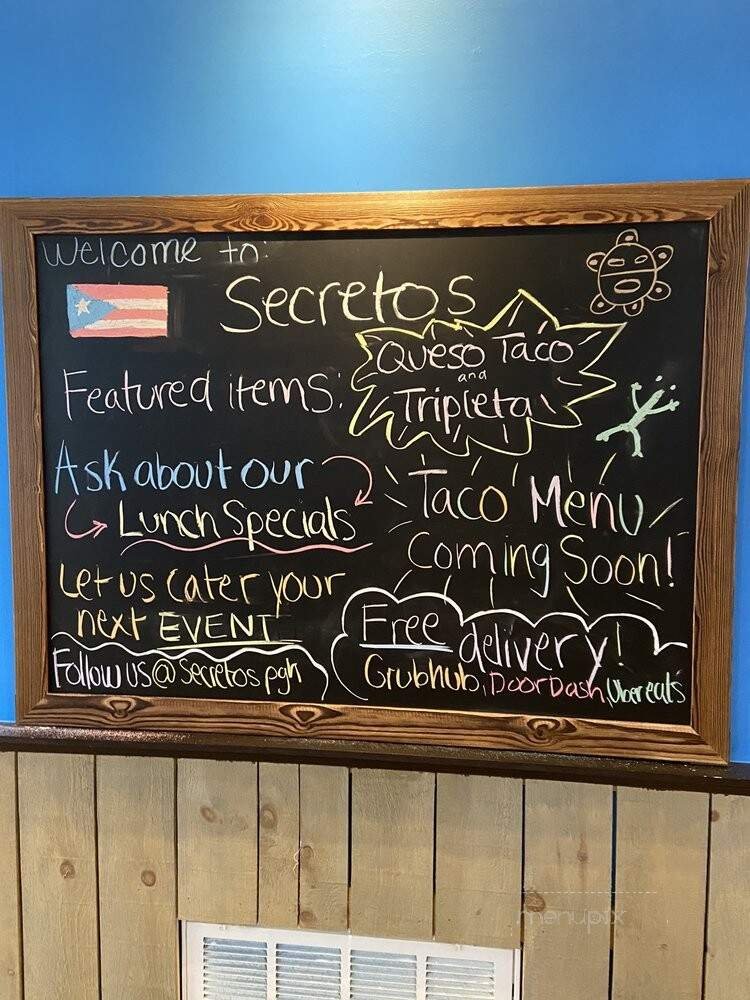 Welcome to:
Secretos
Featured items:
Queso Taco
and
Tripleta
Ask about our
Lunch Specials
Taco Menu
Coming Soon!
Let us cater your
next EVENT
Follow us @ Secretos pgh
Free delivery!
Grubhub, DoorDash, Uber eats
menupix